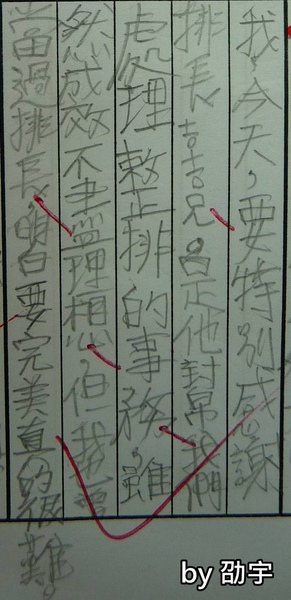 我，今天，要特別感謝
排長喆兄。是他幫我們
處理整排的事務，雖
然成效不盡理想但我也曾
當過排長，明白要完美真的很難。
by 劭宇